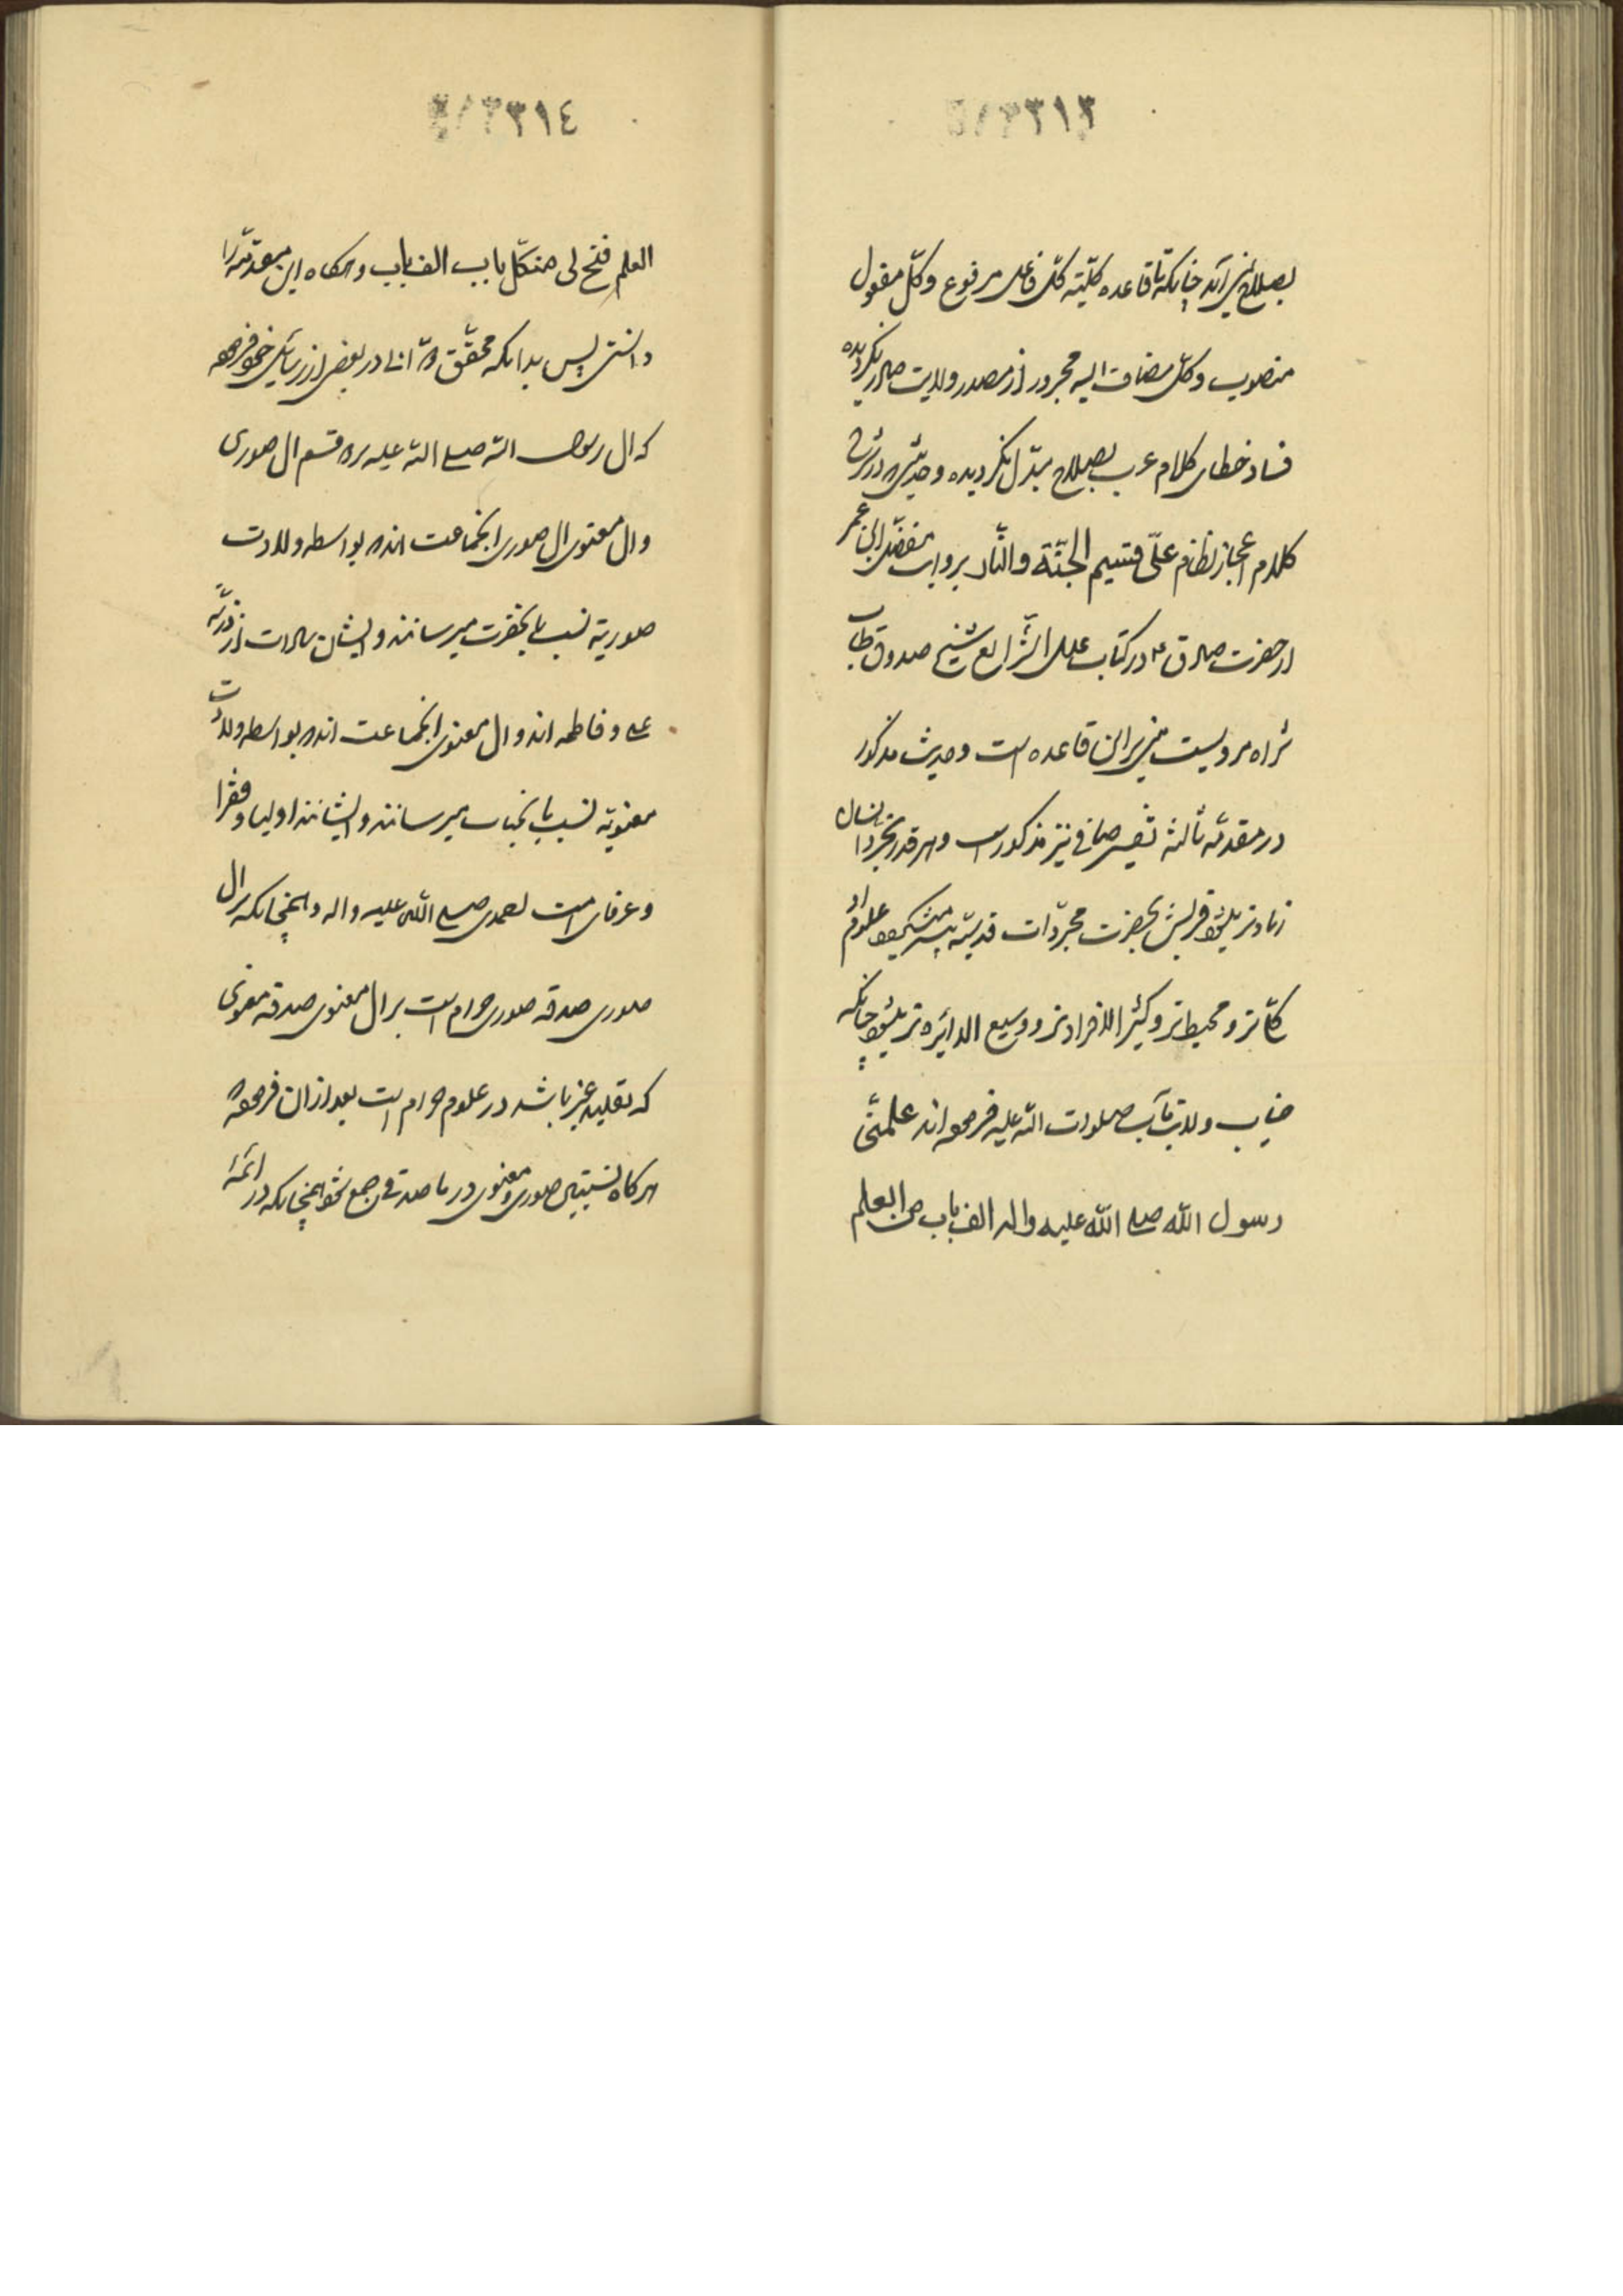 ٣٣١٣
بصلاح نمی‌آید چنانکه تا قاعده کلّیّه کلّ فاعل مرفوع وکلّ مفعول
منصوب وکلّ مضاف الیه مجرور از مصدر ولایت صادر نگردیده
فساد خطای کلام عرب بصلاح مبدّل نگردیده وحدیث
کلام اعجاز نظام علیّ قسیم الجنّة والنّار بروایت مفضّل ابن عمر
از حضرت صادق ع در کتاب علل الشّرایع شیخ صدوق طاب
ثراه مرویست مبنی برا ین قاعده است وحدیث مذکور
در مقدّمه ثالثه تفسیر صافی نیز مذکور است وهر قدر تجرّد انسان
زیادتر میشود قربش بحضرت مجرّدات قدسیّه بیشتر میشود علوم او
کلّی‌تر ومحیط‌تر وکثیر الافراد‌تر ووسیع الدائره‌تر میشود چنانکه
جناب ولایتمآب صلوات الله علیه فرموده‌اند علّمنی
رسول الله صلی الله علیه واله الف باب من العلم
٣٣١٤
العلم فتح لی من کلّ باب الف باب وهرگاه این مقدّمه را
دانستی پس بدانکه محقّق دوّانی در بعضی از رسایل خود فرموده
که ال رسول الله صلی الله علیه بر دو قسم ال صوری
وال معنوی ال صوری انجماعت اند که بواسطه ولادت
صوریّه نسب بانحضرت میرسانند وایشان سادات از ذریّه
علی وفاطمه اند وال معنوی انجماعت اند که بواسطه ولادت
معنویّه نسب بانجناب میرسانند وایشانند اولیا وفقرا
وعرفای امت محمدی صلی الله علیه واله وهمچنانکه بر ال
صوری صدقه صوری حرام است بر ال معنوی صدقه معنوی
که تقلید غیر باشد در علوم حرام است بعد از ان فرموده
هرگاه نسبتین صوری ومعنوی در ماصدقی جمع شود همچنانکه در ائمّه